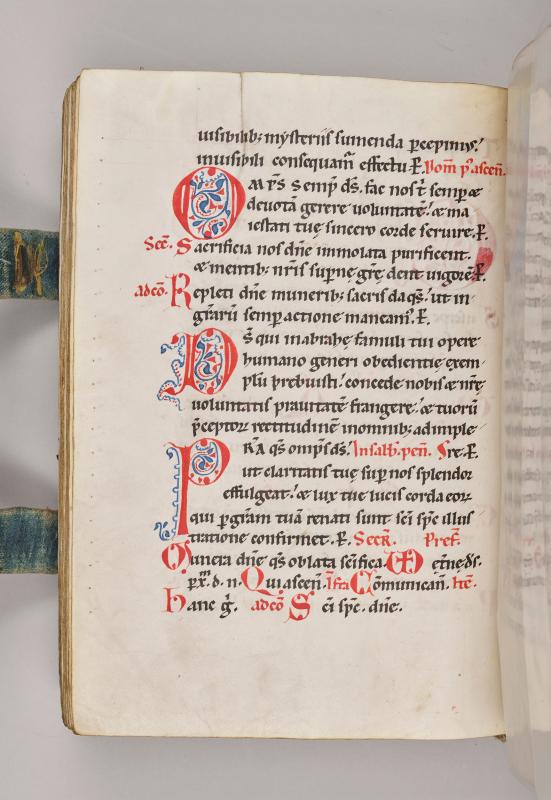 uisibilib; mysteriis sumenda p̄cepimus.
inuisibili consequam̄ effectu. P̄. Dom̄ p̄ ascen̄.
Om̄ps semp̄ ds̄. fac nos t̄ semp̄ &
deuotā gerere uoluntatē. & ma
iestati tuę sincero corde seruire. P̄.
Sec̄. Sacrificia nos dn̄e immolata purificent.
& mentib; nr̄is sup̄nę gr̄ę dent uigorē. P̄.
ad cō. Repleti dn̄e munerib; sacris da qs̄. ut in
gr̄arū semp̄ actione maneam̄. P̄.
Ds̄ qui in abrahę famuli tui opere
humano generi obedientię exem
plū prebuisti. concede nobis & nr̄ę
uoluntatis prauitatē frangere. & tuorū
p̄ceptor̄ rectitudinē in omnib; adimple
PRA qs̄ omp̄s ds̄. In sabb. pen̄. re. P̄.
ut claritatis tuę sup̄ nos splendor
effulgeat. & lux tuę lucis corda eor̄
qui p̄ gr̄am tuā renati sunt sc̄i sp̄c illus
tratione confirmet. P̄. Secr̄. Pref̄.
Munera dn̄e qs̄ oblata sc̄ifica. ęt̄ne ds̄.
p̄ xp̄m d. n. Qui ascen̄. Infra Com̄unican̄. It̄ē.
hanc g̓. ad cō Sc̄i sp̄c. dn̄e.